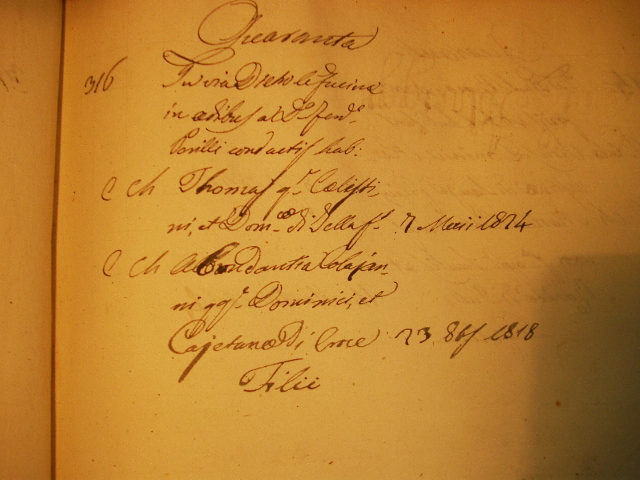 Quaranta
316 In via Dietro le Fucine
in ædibus a D. Ferd.
conductis hab:
C Ch Thomas q.m Cælesti,
ni, et Dom.cæ di 7 Maii 1824
C Ch Abbondantia Colajan,
ni qq.m Dominici, et
Cajetanæ Di Croce 23 8bs 1818
Filii